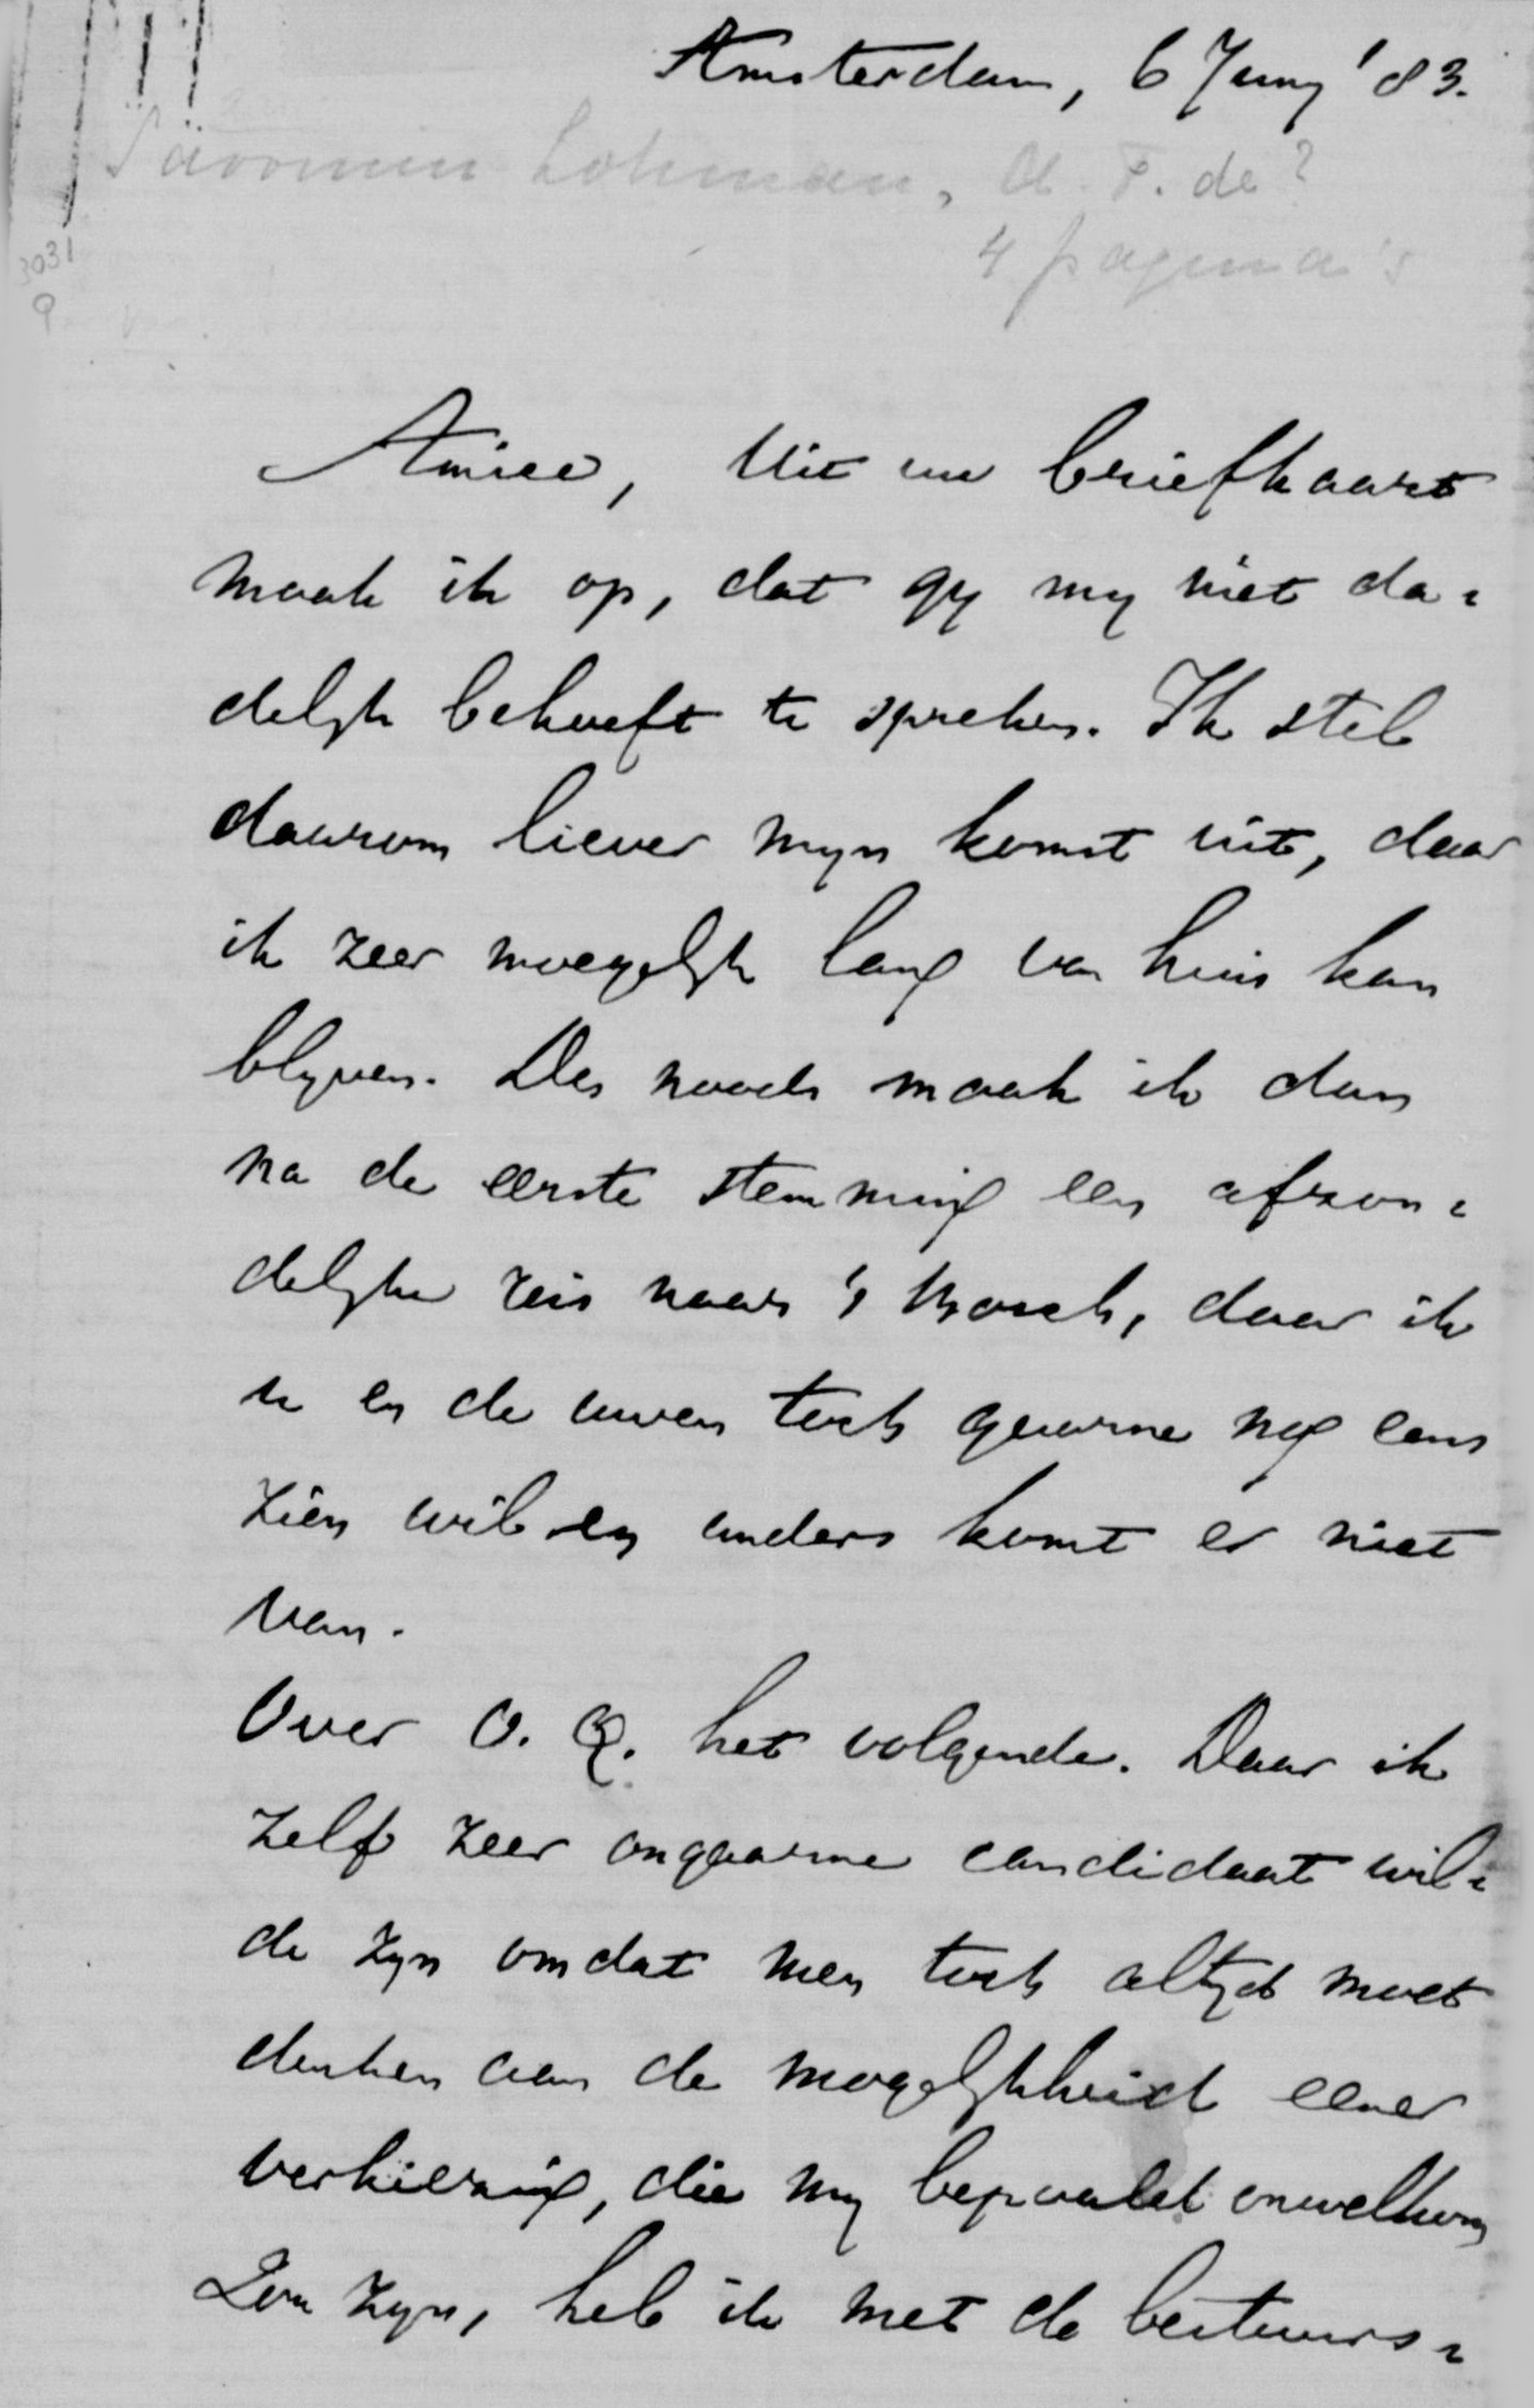 Amsterdam, 6 Juny '83.
Savornin Lohman, A. F. de?
4 pagina's
3031
9
Amice, Uit uw briefkaart
maak ik op, dat gy my niet da-
delyk behoeft te spreken. Ik stel
daarom liever myn komst uit, daar
ik zeer moegelyk lang van huis kan
blyven. Des noods maak ik dan
na de eerste stemming een afzon-
delyke reis naar 's Bosch, daar ik
u en de uwen toch gaarne nog eens
zien wil en anders komt er niet
van.
Over O. Q. het volgende. Daar ik
zelf zeer ongaarne candidaat wil-
de zyn omdat men toch altyd moet
denken aan de mogelykheid eener
verkiezing, die my bepaald onwelkom
zou zyn, heb ik met de bestuurs-